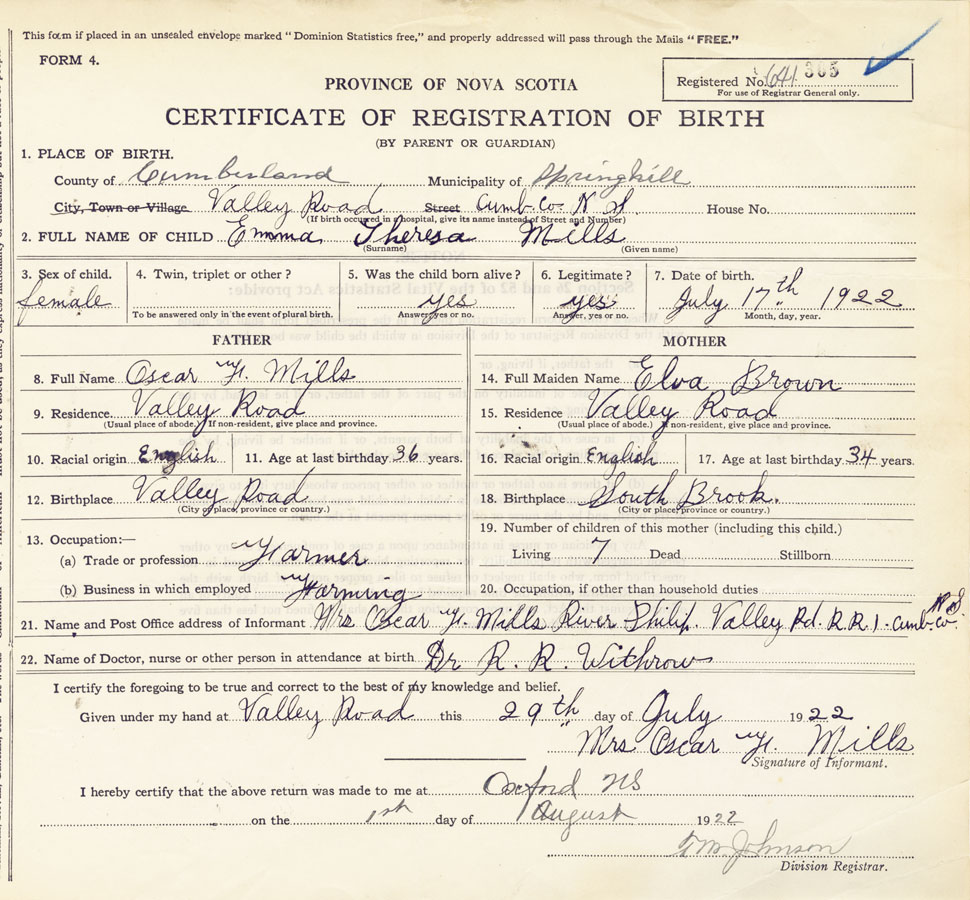 This form if placed in an unsealed envelope marked "Dominion Statistics free," and properly addressed will pass through the Mails "FREE."
FORM 4.
Registered No. 641 365
For use of Registrar General only.
PROVINCE OF NOVA SCOTIA
CERTIFICATE OF REGISTRATION OF BIRTH
(BY PARENT OR GUARDIAN)
1. PLACE OF BIRTH.
County of Cumberland Municipality of Springhill
City, Town or Village Valley Road Street Cumb. Co. N S. House No.
(If birth occurred in a hospital, give its name instead of Street and Number)
2. FULL NAME OF CHILD Emma Theresa Mills
(Surname) (Given name)
3. Sex of child. 4. Twin, triplet or other ? 5. Was the child born alive ? 6. Legitimate ? 7. Date of birth.
female yes yes July 17th 1922
To be answered only in the event of plural birth. Answer, yes or no. Answer, yes or no. Month, day, year.
FATHER MOTHER
8. Full Name Oscar F. Mills 14. Full Maiden Name Elva Brown
9. Residence Valley Road 15. Residence Valley Road
(Usual place of abode.) If non-resident, give place and province. (Usual place of abode.) If non-resident, give place and province.
10. Racial origin English 11. Age at last birthday 36 years. 16. Racial origin English 17. Age at last birthday 34 years.
12. Birthplace Valley Road 18. Birthplace South Brook.
(City or place, province or country.) (City or place, province or country.)
13. Occupation:— 19. Number of children of this mother (including this child.)
(a) Trade or profession Farmer Living 7 Dead Stillborn
(b) Business in which employed Farming 20. Occupation, if other than household duties
21. Name and Post Office address of Informant Mrs Oscar F. Mills River Philip. Valley Rd. R.R.1. Cumb. Co. N.S.
22. Name of Doctor, nurse or other person in attendance at birth Dr R. R. Withrow
I certify the foregoing to be true and correct to the best of my knowledge and belief.
Given under my hand at Valley Road this 29th day of July 1922
Mrs Oscar F. Mills
Signature of Informant.
I hereby certify that the above return was made to me at Oxford NS
on the 1st day of August 1922
Johnson
Division Registrar.